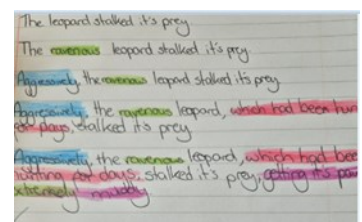 The leopard stalked it's prey
The ravenous leopard stalked it's prey.
Aggressively, the ravenous leopard stalked it's prey
Aggressively, the ravenous leopard, which had been hun
for days, stalked it's prey.
Aggressively, the ravenous leopard, which had bee
hunting for days, stalked it's prey, getting it's pa
extremely muddy.